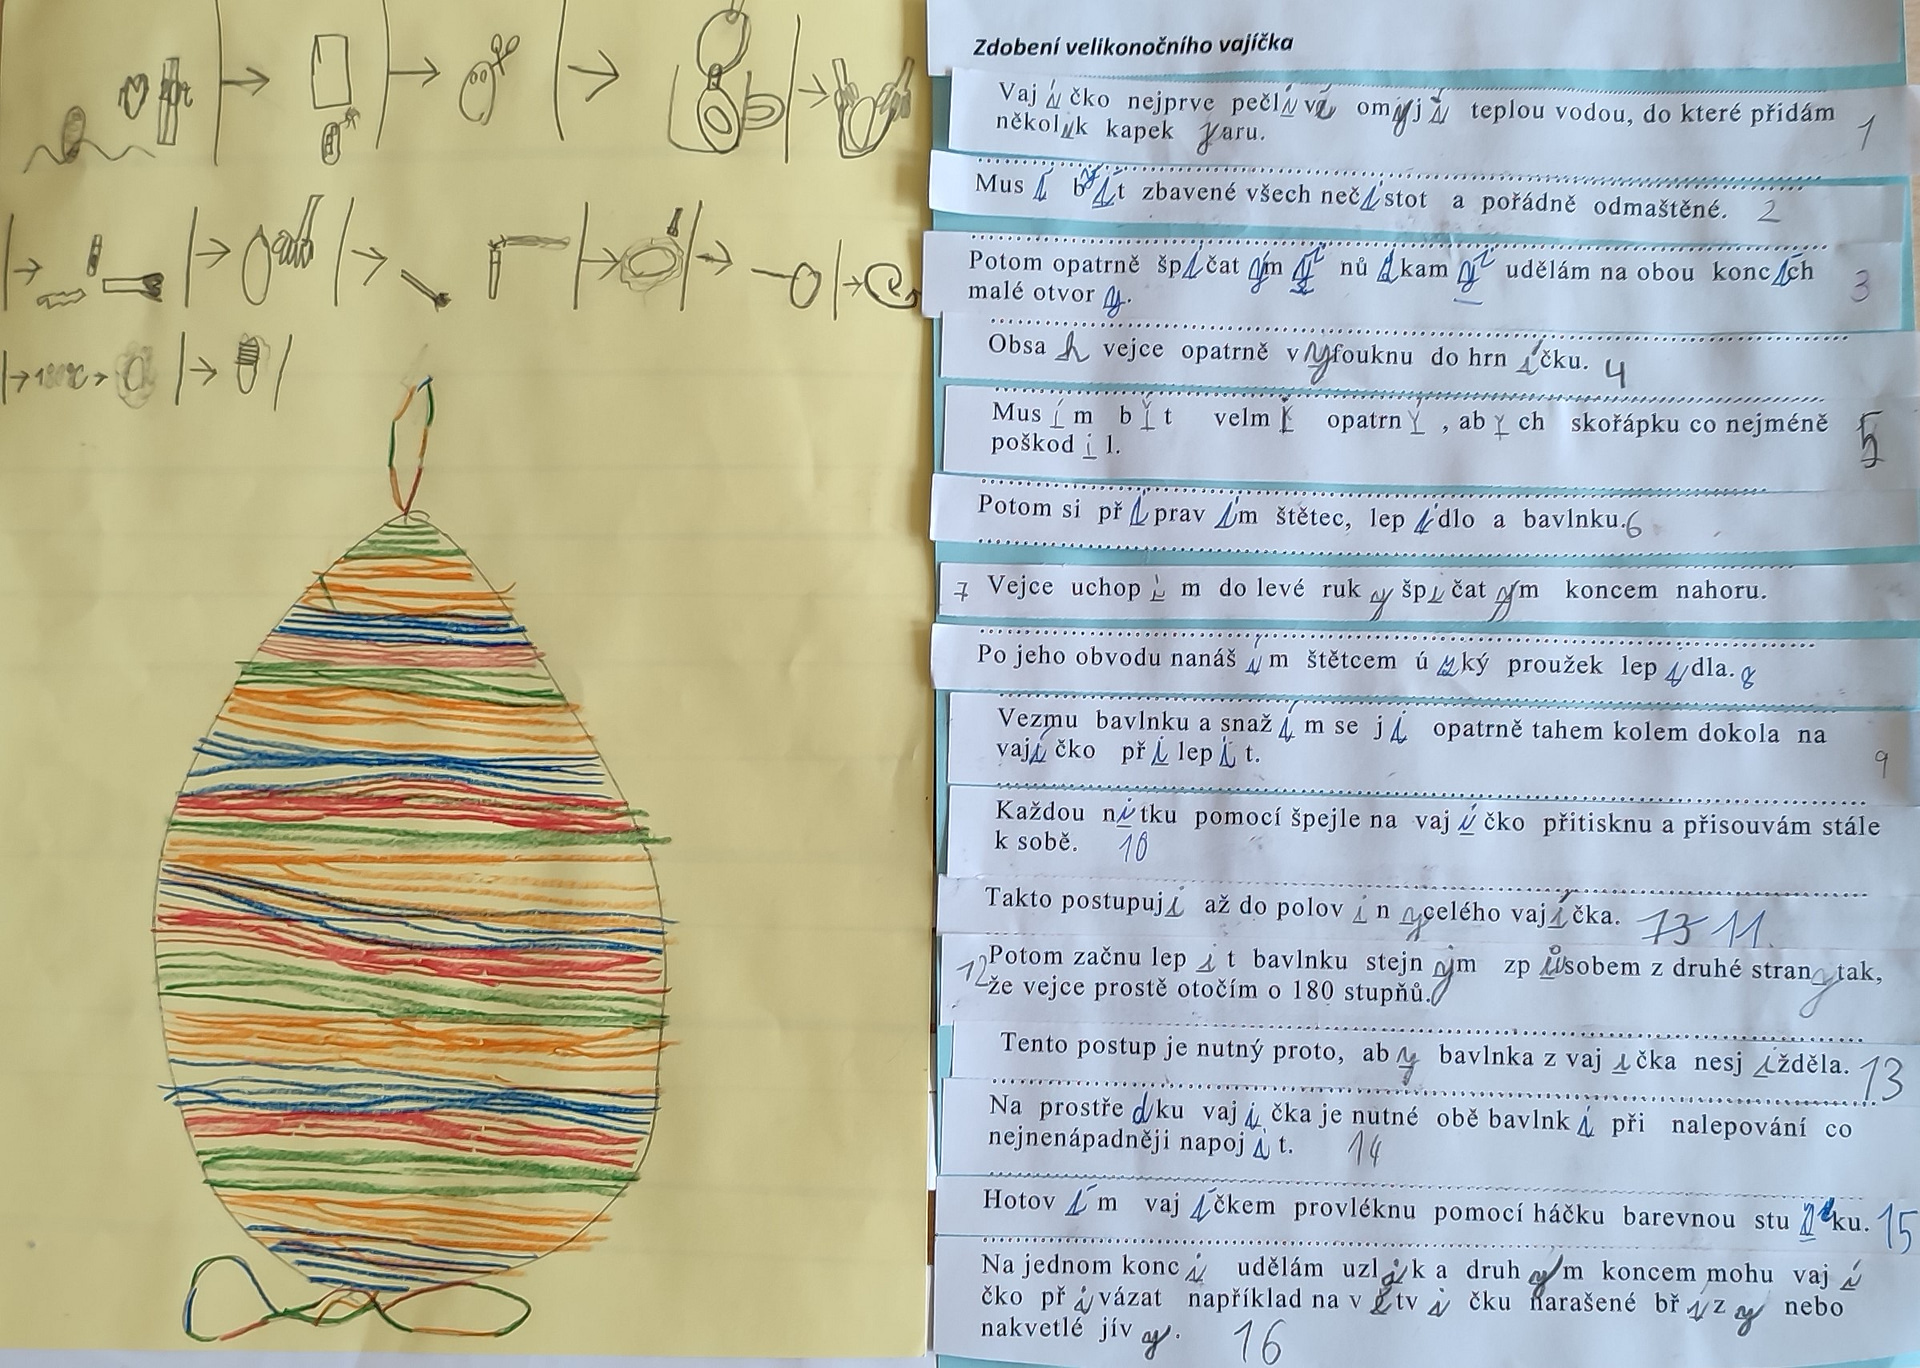 180°C
Zdobení velikonočního vajíčka
Vajíčko nejprve pečlivě omyji teplou vodou, do které přidám
několik kapek jaru. 1
Musí být zbavené všech nečistot a pořádně odmaštěné. 2
Potom opatrně špičatými nůžkami udělám na obou koncích
malé otvory. 3
Obsah vejce opatrně vyfouknu do hrníčku. 4
Musím být velmi opatrný, abych skořápku co nejméně
poškodil. 5
Potom si připravím štětec, lepidlo a bavlnku. 6
7 Vejce uchopím do levé ruky špičatým koncem nahoru.
Po jeho obvodu nanáším štětcem úzký proužek lepidla. 8
Vezmu bavlnku a snažím se ji opatrně tahem kolem dokola na
vajíčko přilepit. 9
Každou nitku pomocí špejle na vajíčko přitisknu a přisouvám stále
k sobě. 10
Takto postupuji až do poloviny celého vajíčka. 11.
12 Potom začnu lepit bavlnku stejným způsobem z druhé strany tak,
že vejce prostě otočím o 180 stupňů.
Tento postup je nutný proto, aby bavlnka z vajíčka nesjížděla. 13
Na prostředku vajíčka je nutné obě bavlnki při nalepování co
nejnenápadněji napojit. 14
Hotovím vajíčkem provléknu pomocí háčku barevnou stužku. 15
Na jednom konci udělám uzlík a druhým koncem mohu vají
čko přivázat například na větvičku narašené břízy nebo
nakvetlé jívy. 16